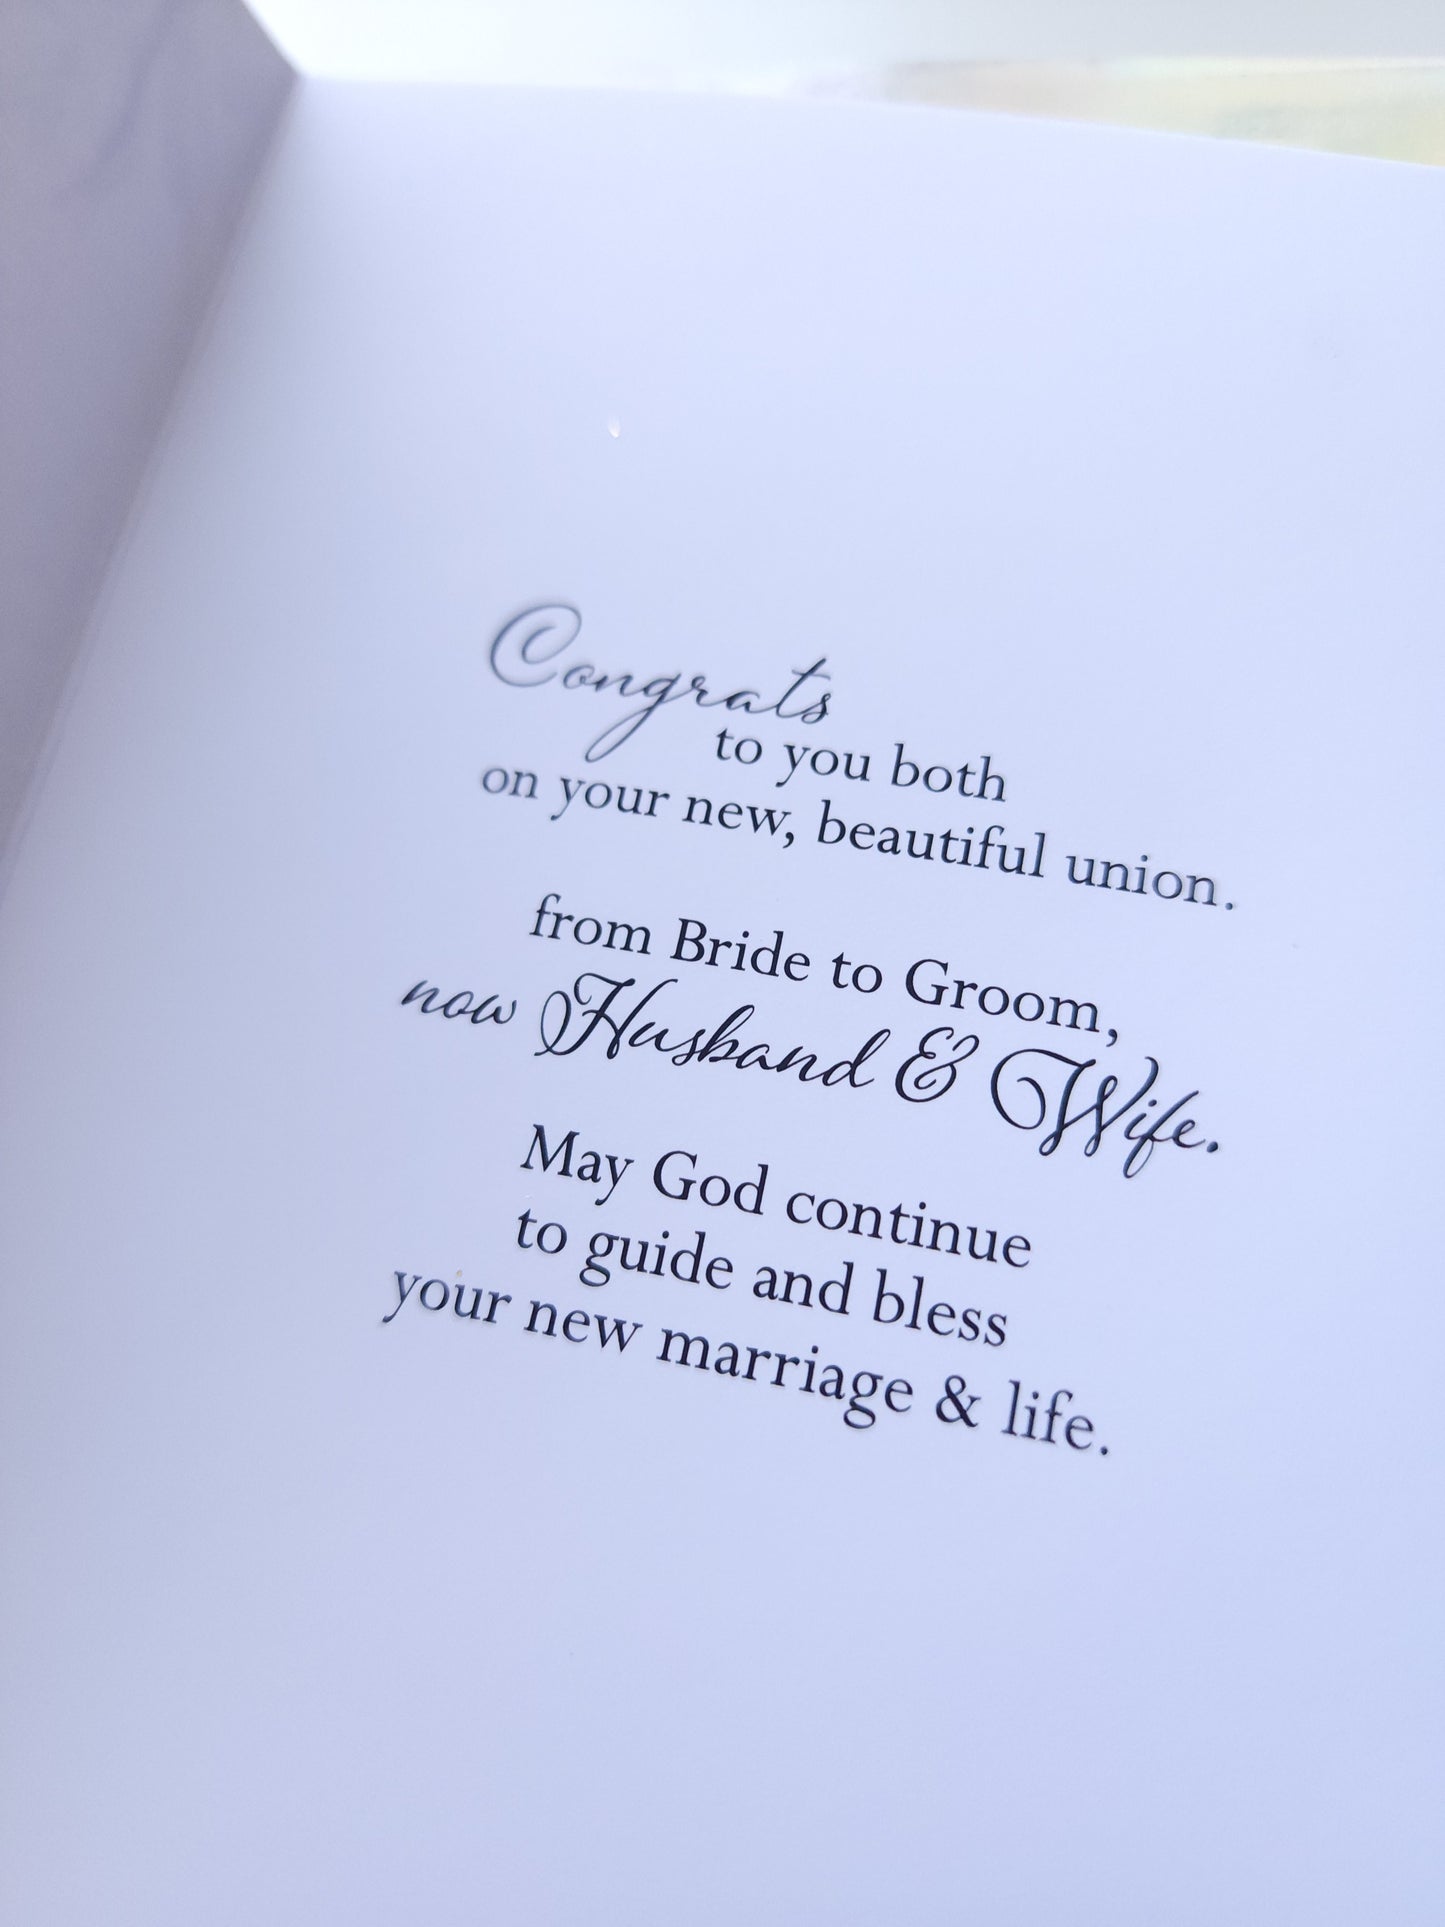 Congrats
to you both
on your new, beautiful union.
from Bride to Groom,
now Husband & Wife.
May God continue
to guide and bless
your new marriage & life.